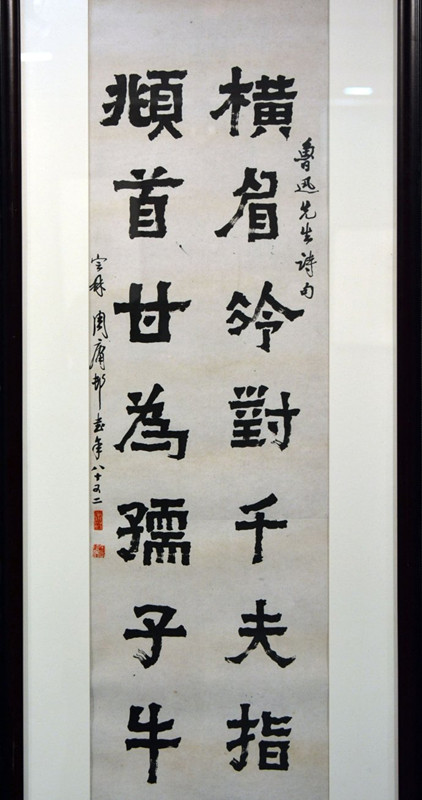 橫眉冷對千夫指
魯迅先生詩句
頫首甘為孺子牛
周庸邨書年八十又二